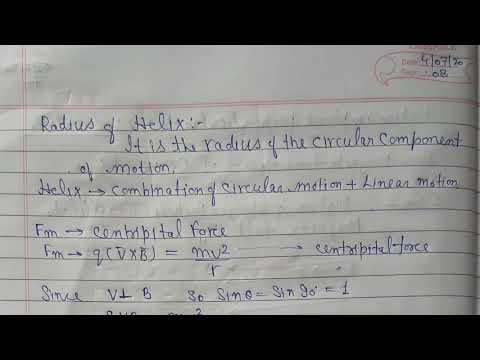 Date 4/07/20
Page :08
Radius of Helix:-
It is the radius of the circular component
of motion.
Helix → combination of circular motion + Linear motion
Fm → centripital force
Fm → q(V̅×B̅) = mv²/r → centripital force
Since V⊥B so Sinθ = Sin90° = 1